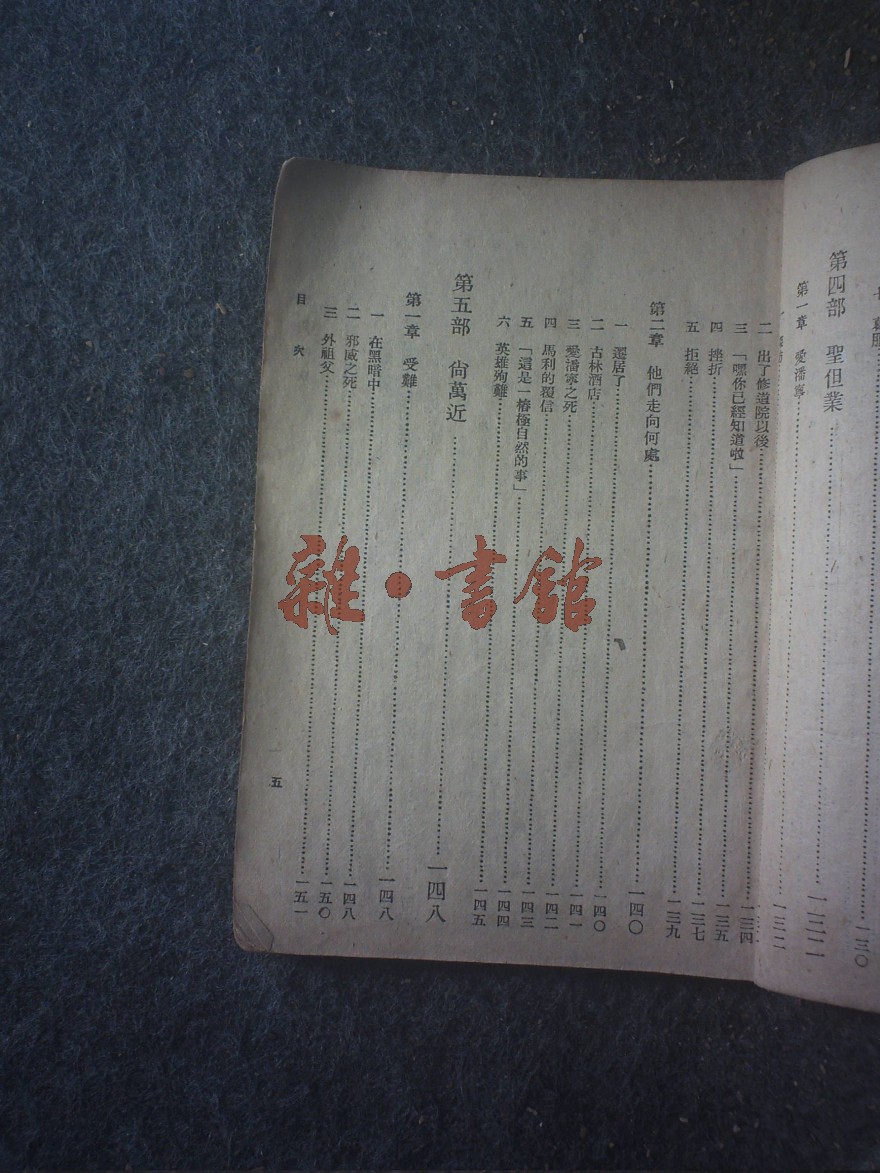 第四部 聖但業……一二二
第一章 愛潘寧……一二二
二 出了修道院以後
三 「嘿你已經知道啦」……一三四
四 挫折……一三五
五 拒絕……一三七
一三九
第二章 他們走向何處……一四〇
一 遷居了
二 古林酒店……一四〇
三 愛潘寧之死……一四一
四 馬利的覆信……一四二
五 「這是一樁極自然的事」……一四三
六 英雄殉難……一四四
一四五
第五部 尙萬近……一四八
第一章 受難……一四八
一 在黑暗中
二 邪威之死……一四八
三 外祖父……一五〇
一五一
目次
五
雜·書館